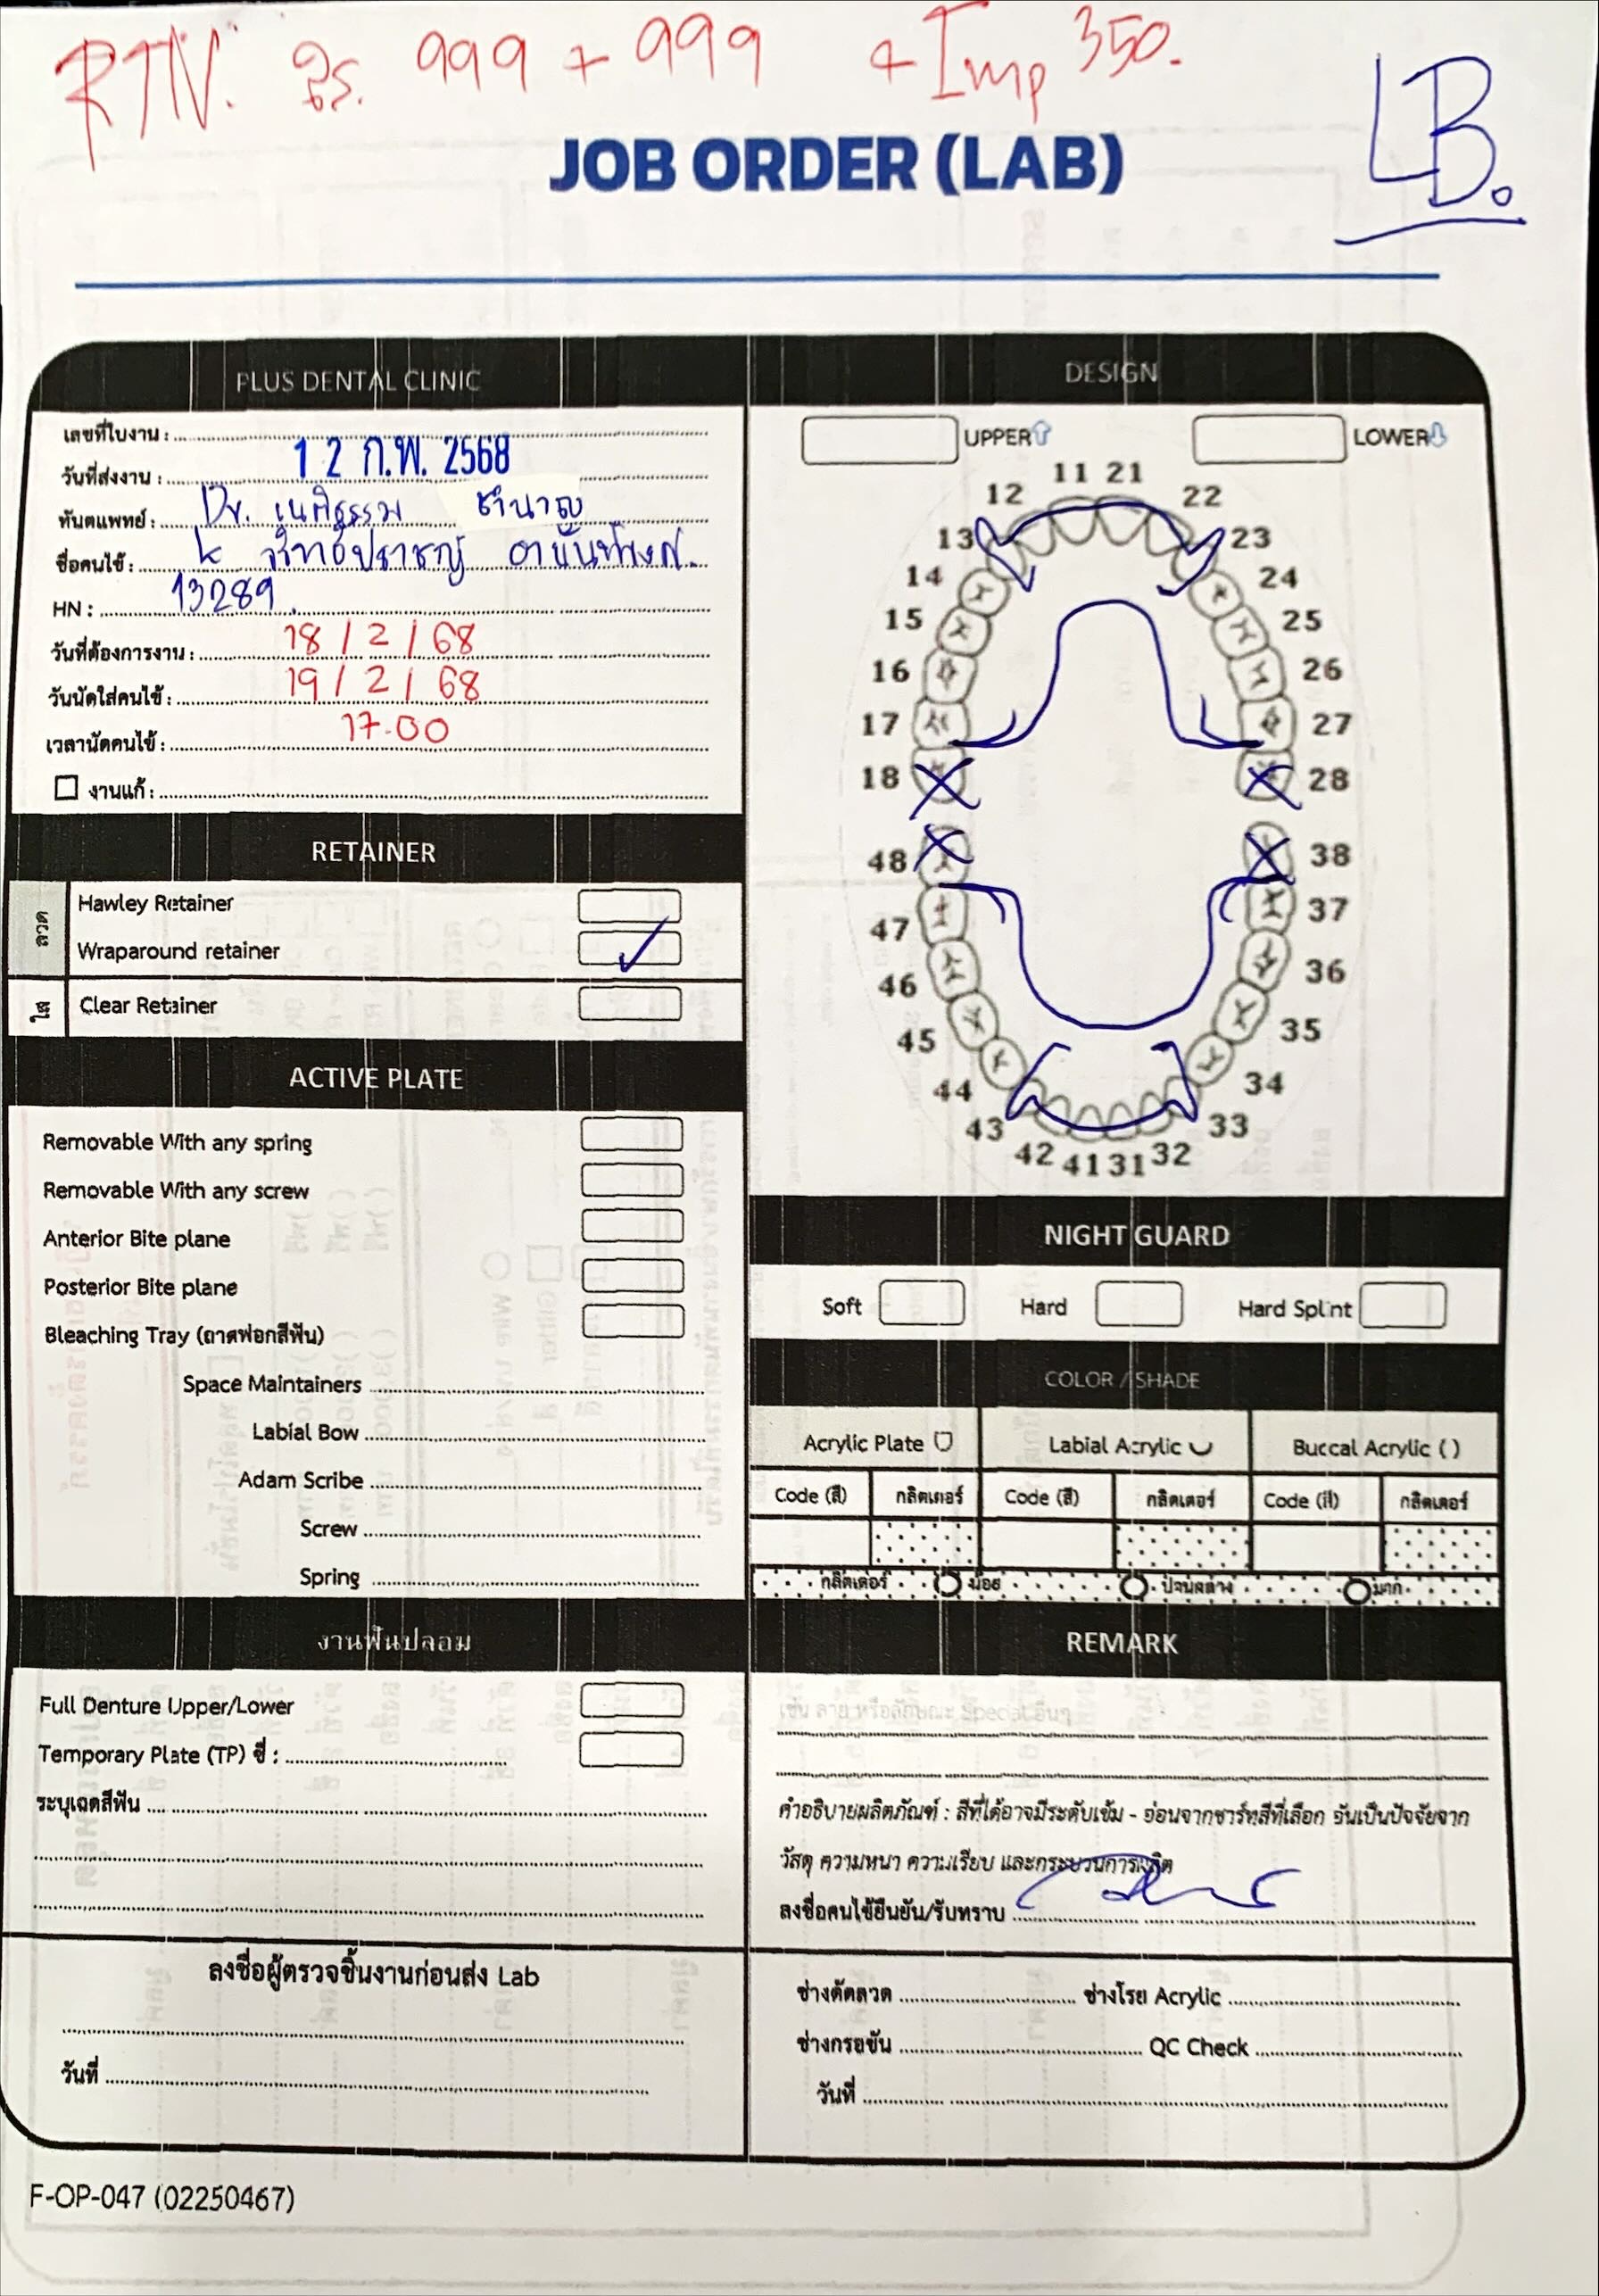 RTN. 999 + 999 + Imp 350.
LB.
JOB ORDER (LAB)
PLUS DENTAL CLINIC
เลขที่ใบงาน :
วันที่ส่งงาน : 12 ก.พ. 2568
ทันตแพทย์ : Dr. เนติธรรม ชำนาญ
ชื่อคนไข้ :
HN : 13289
วันที่ต้องการงาน : 18 / 2 / 68
วันนัดใส่คนไข้ : 19 / 2 / 68
เวลานัดคนไข้ : 17.00
งานแก้ :
RETAINER
ลวด
Hawley Retainer
Wraparound retainer
ใส
Clear Retainer
ACTIVE PLATE
Removable With any spring
Removable With any screw
Anterior Bite plane
Posterior Bite plane
Bleaching Tray (ถาดฟอกสีฟัน)
Space Maintainers
Labial Bow
Adam Scribe
Screw
Spring
งานฟันปลอม
Full Denture Upper/Lower
Temporary Plate (TP) ซี่ :
ระบุเฉดสีฟัน
ลงชื่อผู้ตรวจชิ้นงานก่อนส่ง Lab
วันที่
DESIGN
UPPER LOWER
11 21
12 22
13 23
14 24
15 25
16 26
17 27
18 28
48 38
47 37
46 36
45 35
44 34
43 33
42 41 31 32
NIGHT GUARD
Soft Hard Hard Splint
COLOR / SHADE
Acrylic Plate Labial Acrylic Buccal Acrylic ( )
Code (สี) กลิตเตอร์ Code (สี) กลิตเตอร์ Code (สี) กลิตเตอร์
กลิตเตอร์ น้อย ปานกลาง มาก
REMARK
เช่น ลาย หรือลักษณะ Special อื่นๆ
คำอธิบายผลิตภัณฑ์ : สีที่ได้อาจมีระดับเข้ม - อ่อนจากชาร์ทสีที่เลือก อันเป็นปัจจัยจาก
วัสดุ ความหนา ความเรียบ และกระบวนการผลิต
ลงชื่อคนไข้ยืนยัน/รับทราบ
ช่างดัดลวด ช่างโรย Acrylic
ช่างกรอขัน QC Check
วันที่
F-OP-047 (02250467)